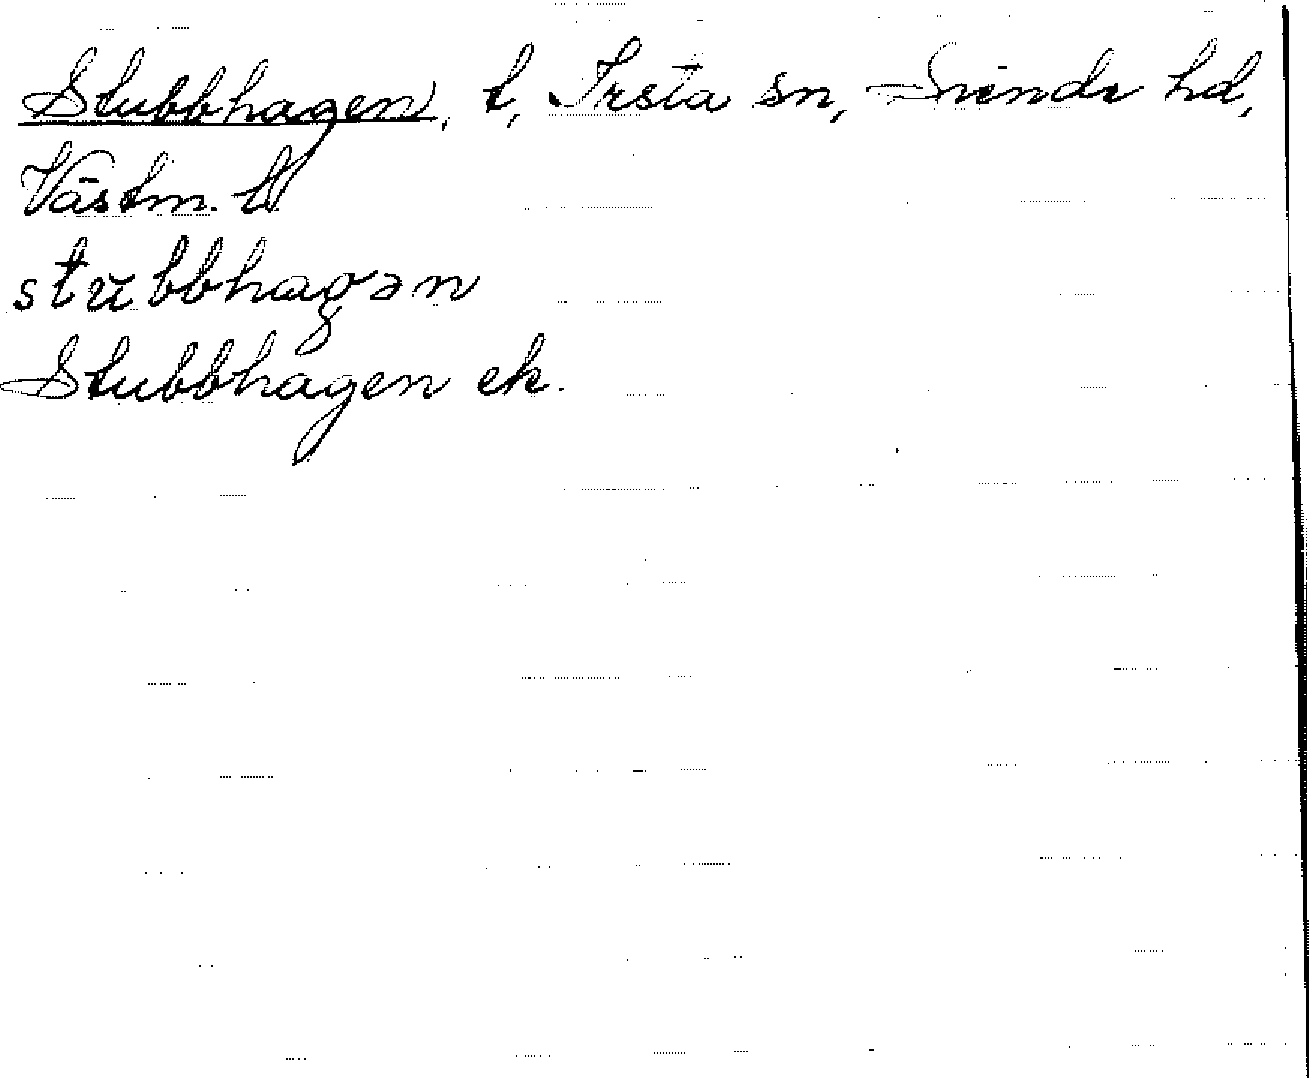 Stubbhagen, t, Irsta sn, Siende hd,
Västm. ll
stŭbbhagən
Stubbhagen ek.